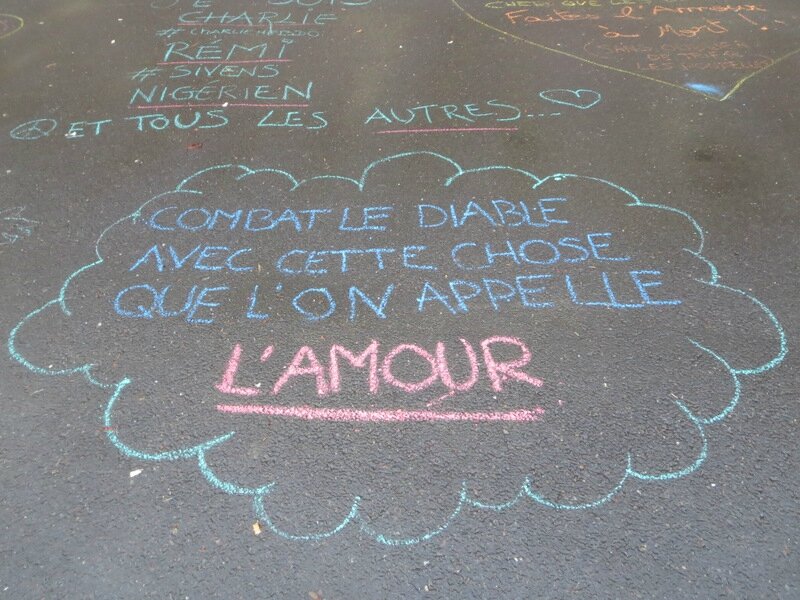 CHARLIE
#CHARLIEHEBDO
RÉMI
#SIVENS
NIGÉRIEN
ET TOUS LES AUTRES...
Faites l'Amour
à Mort
COMBAT LE DIABLE
AVEC CETTE CHOSE
QUE L'ON APPELLE
L'AMOUR